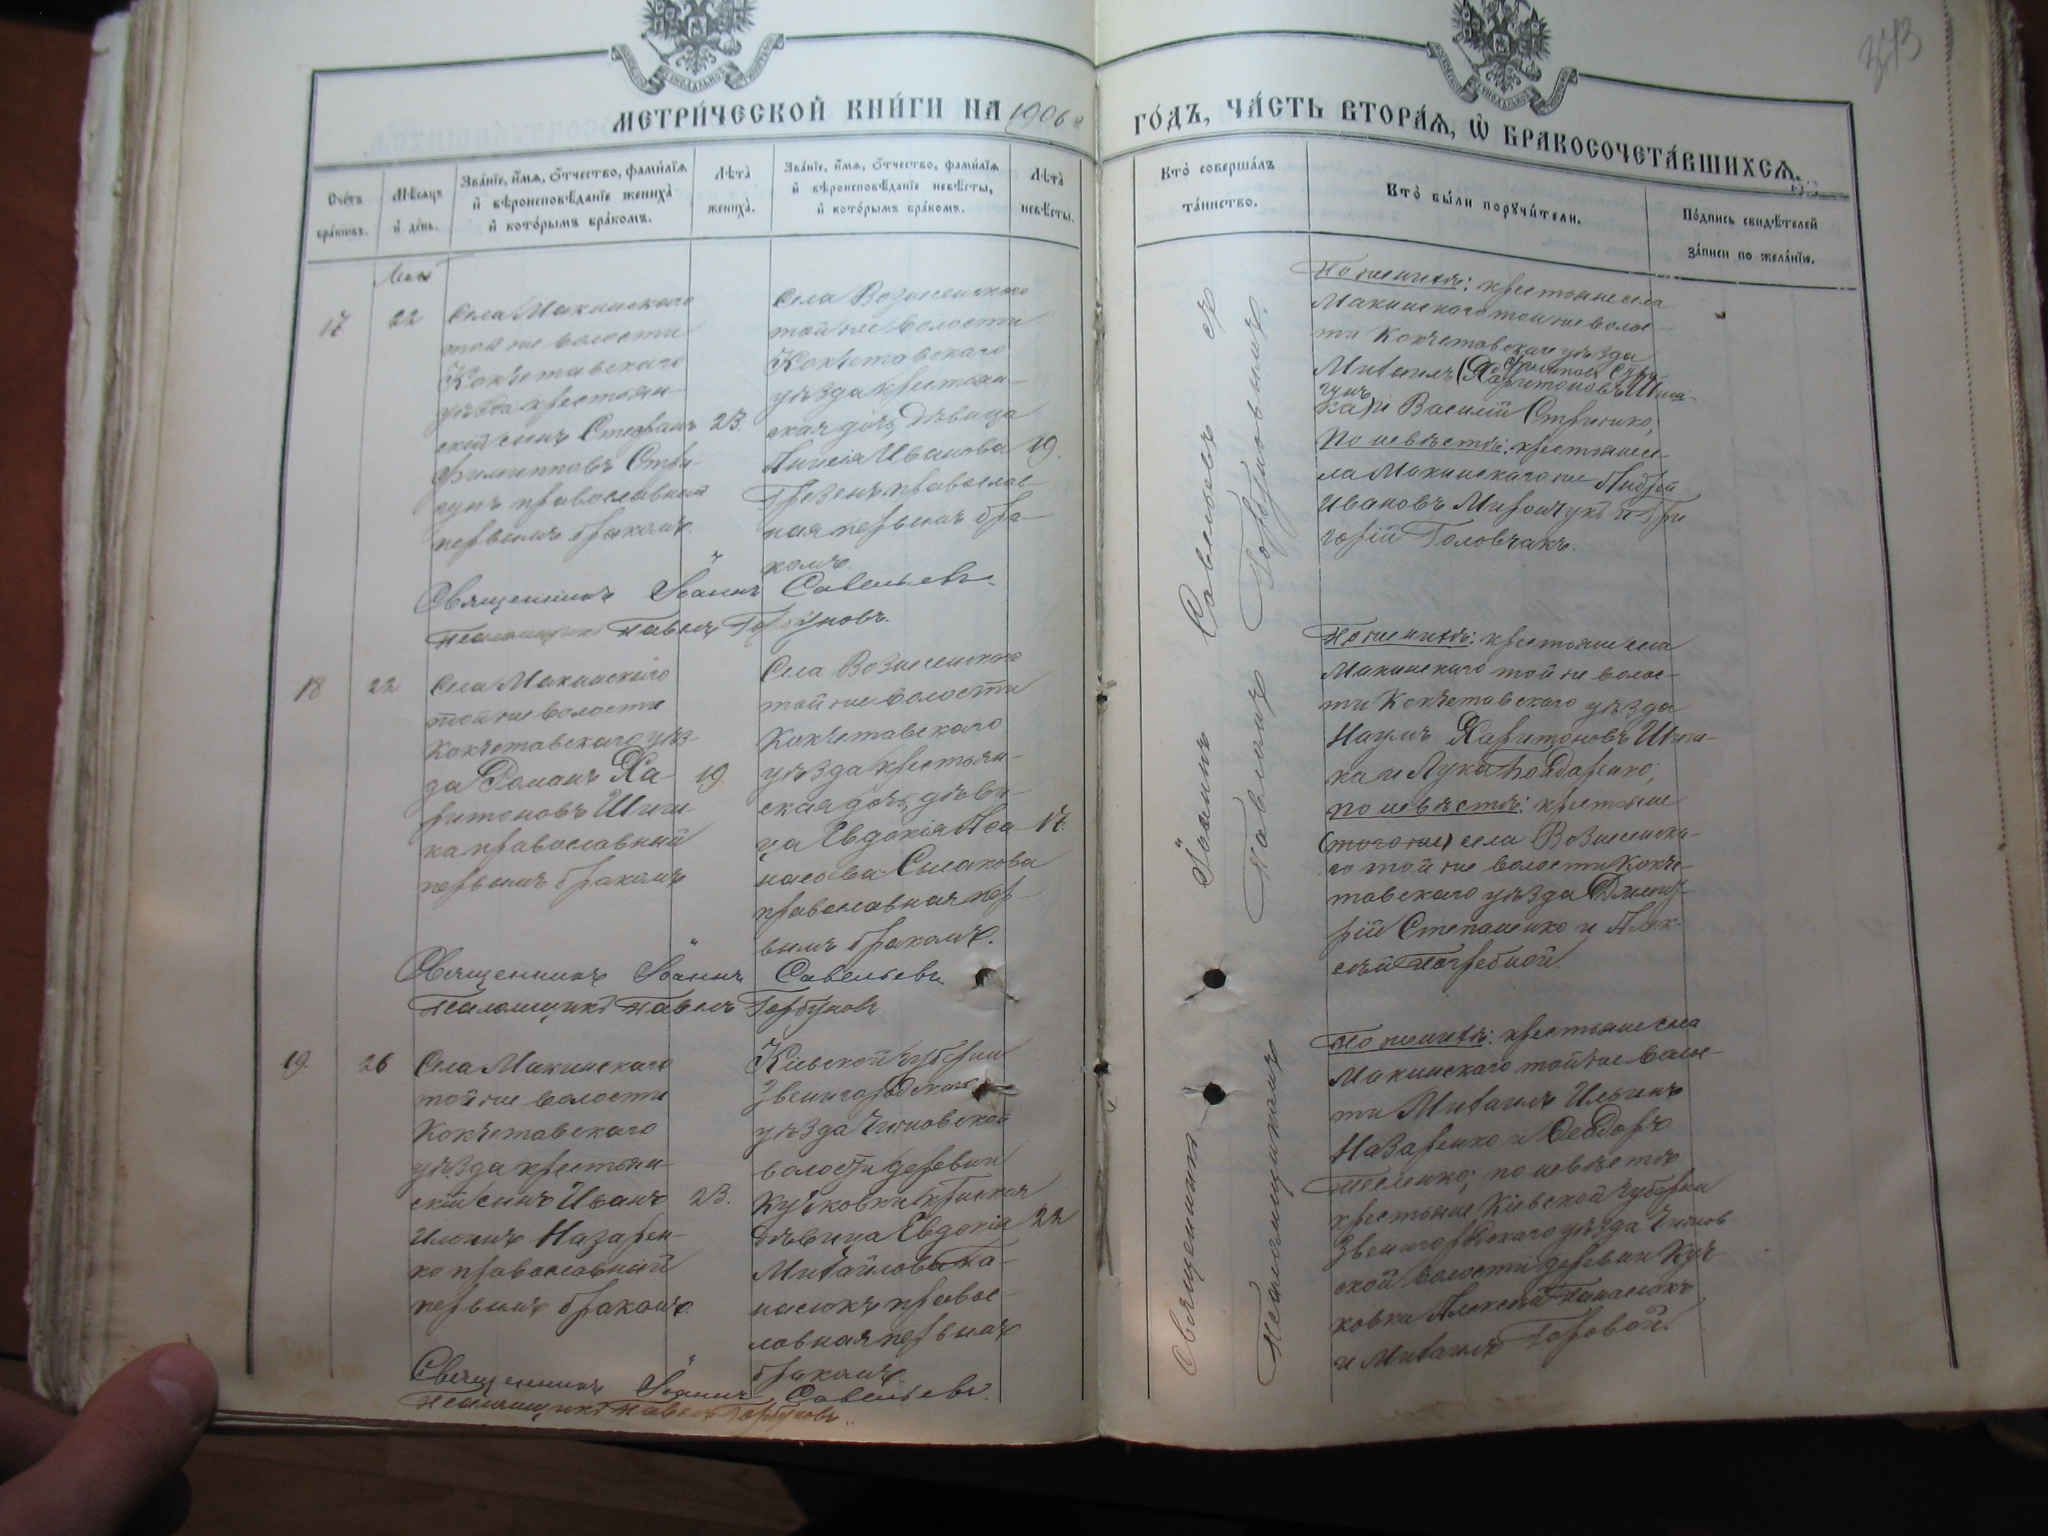 373
МЕТРИ́ЧЕСКОЙ КНИ́ГИ НА 1906 й
ГО́ДЪ, ЧА́СТЬ ВТОРА́Ѧ, Ѡ҆ БРАКОСОЧЕТА́ВШИХСѦ.
Сче́тъ бра́ковъ.
Мѣ́сѧцъ и҆ де́нь.
Зва́нїе, и҆́мѧ, ѻ҆́тчество, фами́лїѧ
и҆ вѣроисповѣ́данїе жениха̀
и҆ кото́рымъ бра́комъ.
Лѣта̀ жениха̀.
Зва́нїе, и҆́мѧ, ѻ҆́тчество, фами́лїѧ
и҆ вѣроисповѣ́данїе невѣ́сты,
и҆ кото́рымъ бра́комъ.
Лѣта̀ невѣ́сты.
Кто̀ соверша́лъ
та́инство.
Кто̀ бы́ли порꙋчи́тели.
По́дпись свидѣ́телей
за́писи по жела́нїю.
Май
17
22
Села Макинскаго
той же волости
Кокчетавскаго
уѣзда крестьян-
скій сынъ Стефанъ
Филипповъ Стри-
гунъ православный
первымъ бракомъ.
23.
Села Вознесенскаго
той же волости
Кокчетавскаго
уѣзда крестьян-
ская дочь, дѣвица
Анисія Иванова
православ-
ная первымъ бра-
комъ.
19.
Священникъ Іоаннъ Савельевъ.
Псаломщикъ Павелъ Горбуновъ.
По женихѣ: крестьяне села
Макинскаго той же волос-
ти Кокчетавскаго уѣзда
Михаилъ (Филиповъ Стри-
гунъ) Харитоновъ Шиш-
ка) и Василій
По невѣстѣ: крестьяне се-
ла Макинскаго же Андрей
Ивановъ Мирончукъ и Гри-
горій Головчакъ.
18
22
Села Макинскаго
той же волости
Кокчетавскаго уѣз-
да Романъ Ха-
ритоновъ Шиш-
ка православный
первымъ бракомъ
19.
Села Вознесенскаго
той же волости
Кокчетавскаго
уѣзда крестьян-
ская дочь, дѣви-
ца Евдокія Афа-
насова Сынакова
православная пер-
вымъ бракомъ.
17.
Священникъ Іоаннъ Савельевъ
Псаломщикъ Павелъ Горбуновъ
По женихѣ: крестьяне села
Макинскаго той же волос-
ти Кокчетавскаго уѣзда
Наумъ Харитоновъ Шиш-
ка и Лука Бондаренко;
по невѣстѣ: крестьяне
(того же) села Вознесенска-
го той же волости Кокче-
тавскаго уѣзда Димит-
рій Степаненко и Алек-
сѣй Погребной.
19.
26
Села Макинскаго
той же волости
Кокчетавскаго
уѣзда крестьян-
скій сынъ Иванъ
Ильинъ Назарен-
ко православный
первымъ бракомъ.
23.
Кіевской губерніи
Звенигородскаго
уѣзда Чижовской
волости деревни
Кучковки крестьянка
дѣвица Евдокія
Михайлова Па-
насюкъ правос-
лавная первымъ
бракомъ.
22
Священникъ Іоаннъ Савельевъ.
Псаломщикъ Павелъ Горбуновъ.
По женихѣ: крестьяне села
Макинскаго той же волос-
ти Михаилъ Ильинъ
Назаренко и Ѳеодоръ
Теленко; по невѣстѣ
крестьяне Кіевской губерніи
Звенигородскаго уѣзда Чижов
ской волости деревни Куч
ковки Алексѣй Панасюкъ
и Михаилъ Горовой.
Священникъ Іоаннъ Савельевъ съ
Псаломщикомъ Павломъ Горбуновымъ.